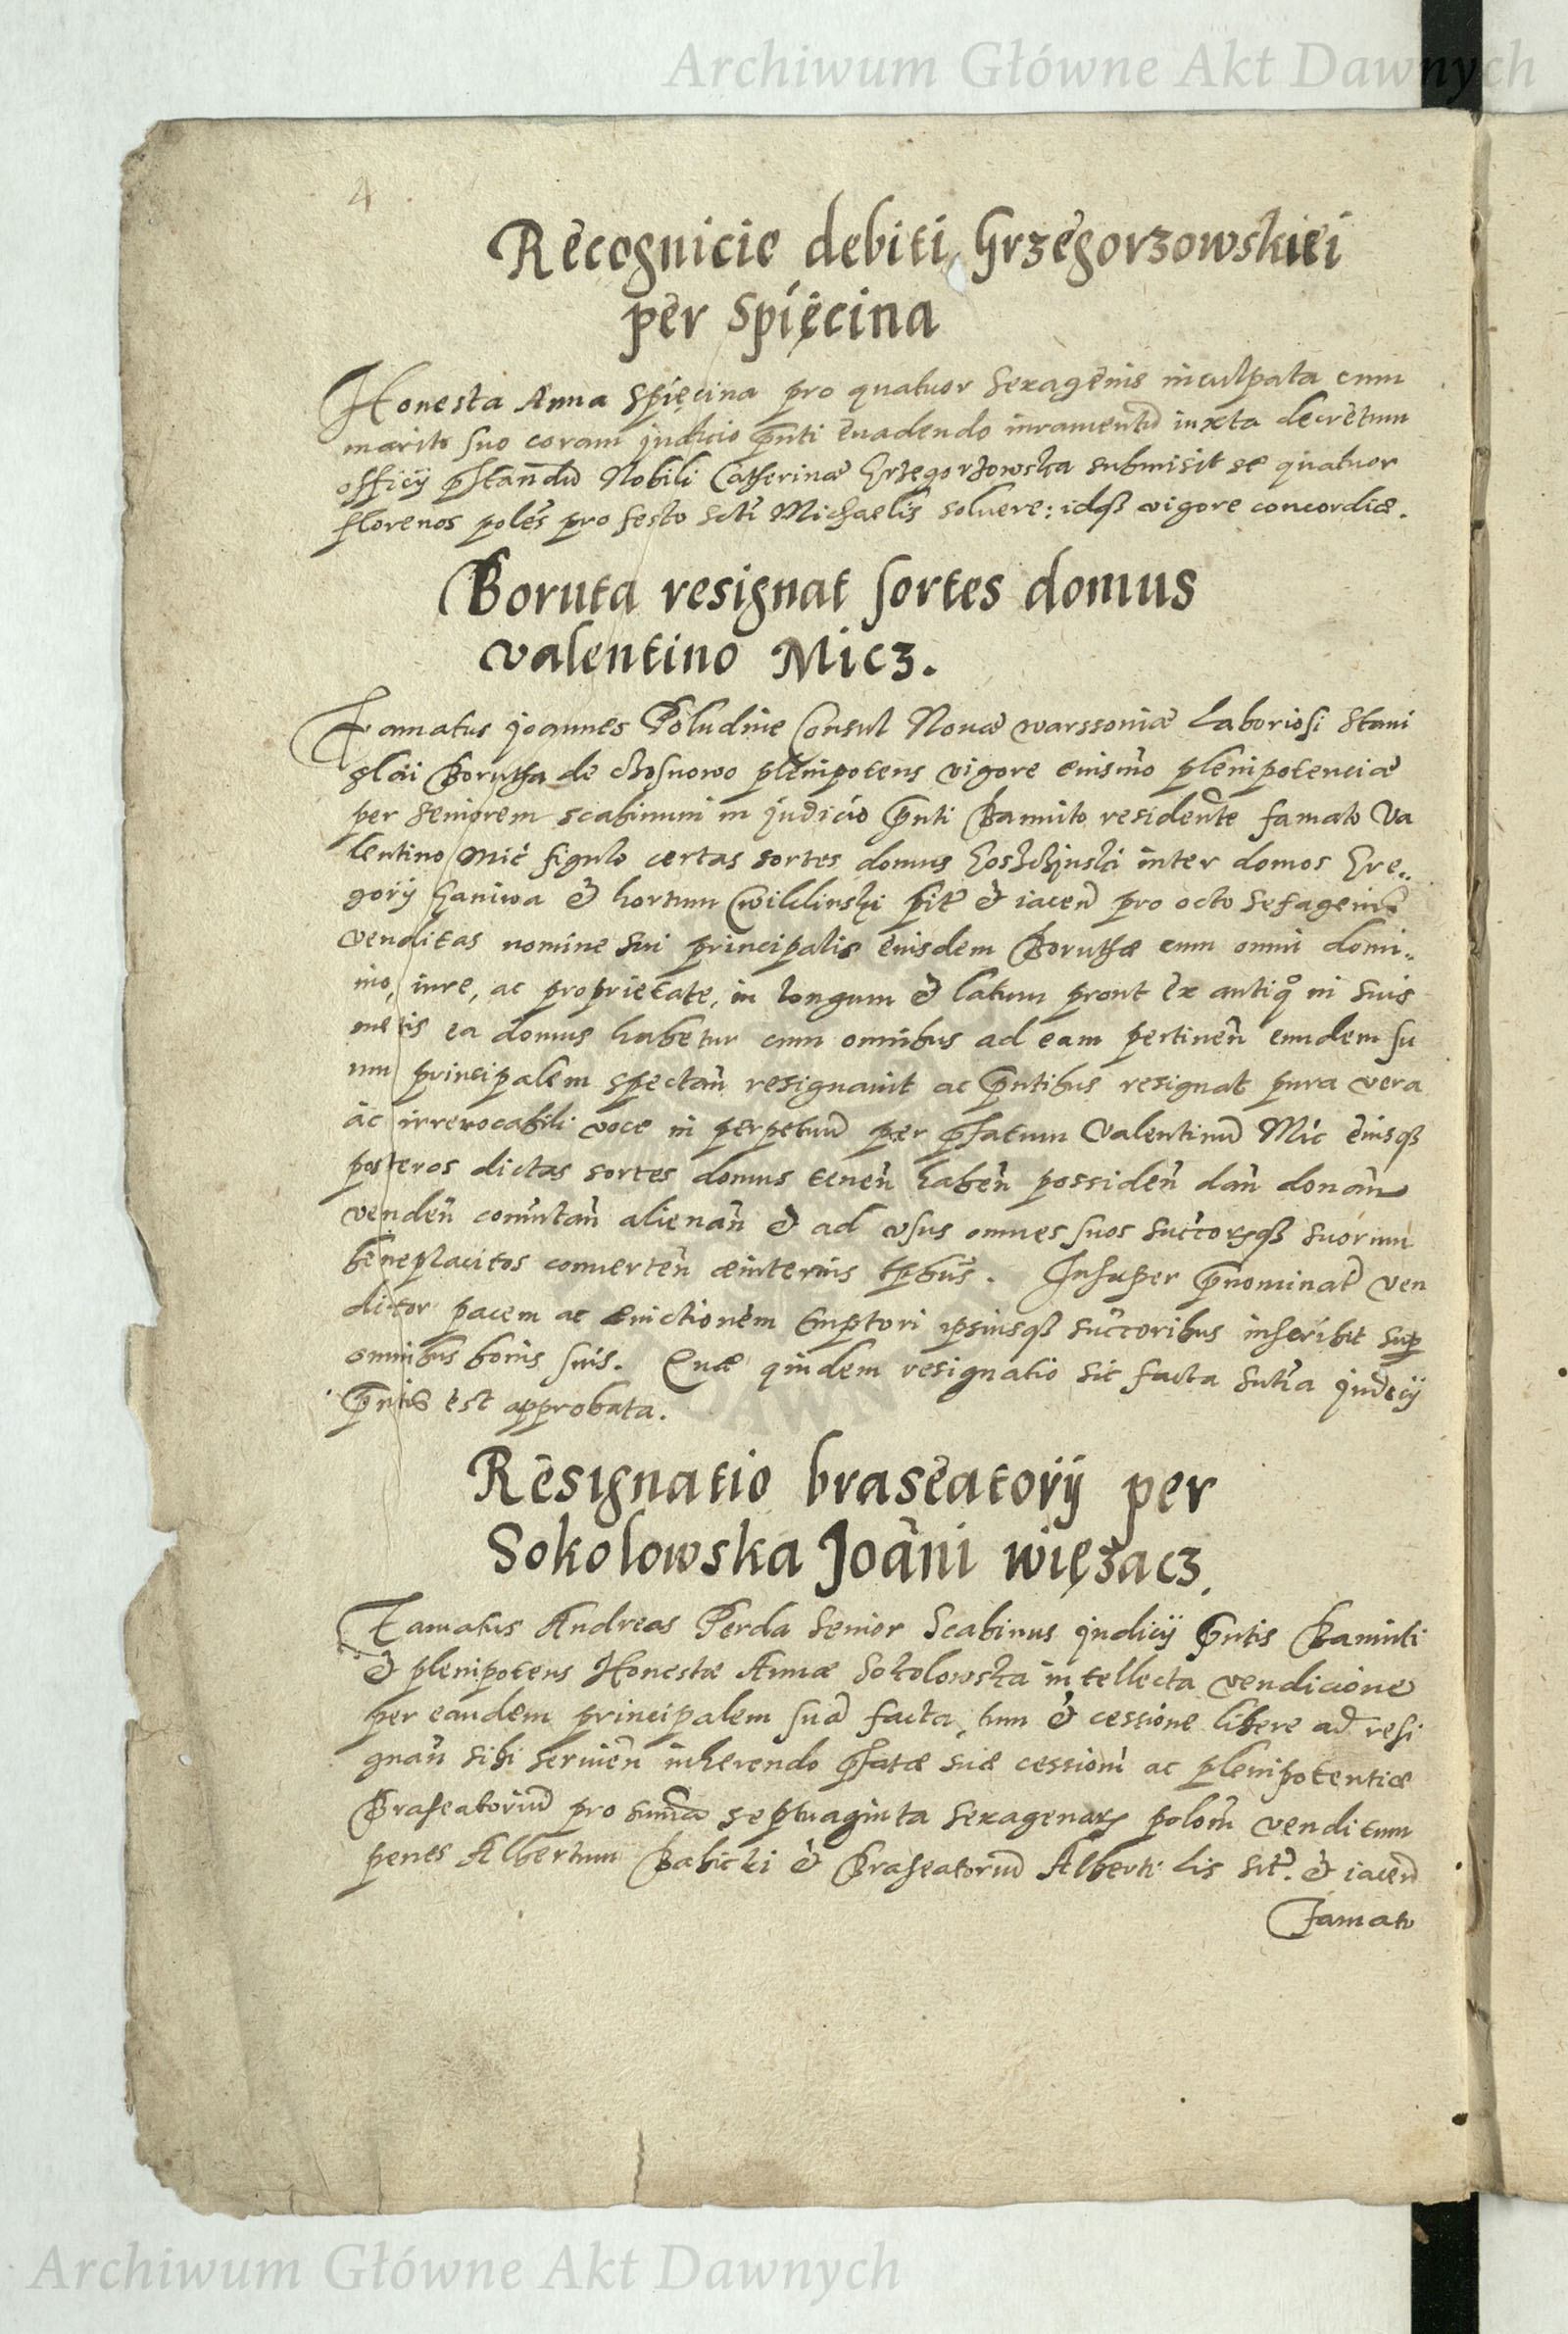 Archiwum Główne Akt Dawnych
4
Recognicie debiti Grzegorzowskiei
per Spięcina
Honesta Anna Spięcina pro quatuor sexagenis inculpata cum
marito suo coram judicio pñti evadendo iuramentũ iuxta decretum
officij pręstandũ Nobili Catherinæ Grzegorzowska submisit se quatuor
florenos poleñ pro festo scti Michaelis soluere: idqȝ vigore concordiæ.
Boruta resignat sortes domus
valentino Micz.
Famatus Joannes Poludnie Consul Novæ warssoniæ Laboriosi Stani
slai Borutha de chosnowo plenipotens vigore eiusmo plenipotenciæ
per seniorem scabinum in judicio pñti Bannito residente famato Va
lentino Mić figulo certas sortes domus inter domos Gre„
gorij Ganiwa & hortum Cwiklinski sit̃ & iaceñ pro octo sexagenis
venditas nomine sui principalis eiusdem Boruthæ cum omni domi„
nio, iure, ac proprietate, in longum & latum prout ex antiqo in suis
metis ea domus habetur cum omnibus ad eam pertineñ eundem su
um principalem spectañ resignauit ac pñtibus resignat pura vera
ac irrevocabili voce in perpetuũ per pfatum Valentinũ Mić eiusqȝ
posteros dictas sortes domus teneñ habeñ possideñ dañ donañ
vendeñ comutañ alienañ & ad vsus omnes suos succorqȝ suorum
beneplacitos converteñ æuiternis tpbus. Insuper pnominat̃ ven
ditor pacem ac evictionem Emptori ipsiusqȝ succoribus inscribit sup
omnibus bonis suis. Quæ quidem resignatio sic facta sntia judicij
pñtis est approbata.
Resignatio braseatorij per
Sokolowska Joãni więzacz.
Famatus Andreas Perda Senior Scabinus judicij pñtis Banniti
& plenipotens Honestæ Annæ Sokolowska intellecta vendicione
per eandem principalem suã facta, tum & cessione libere ad resi
gnañ sibi servieñ inherendo pfatæ suæ cessioni ac plenipotentiæ
Braseatoriũ pro suma septuaginta sexagenar polon venditum
penes Albertum Babicki & Braseatoriũ Alberti Lis sit̃. & iaceñ
Famato
Archiwum Główne Akt Dawnych